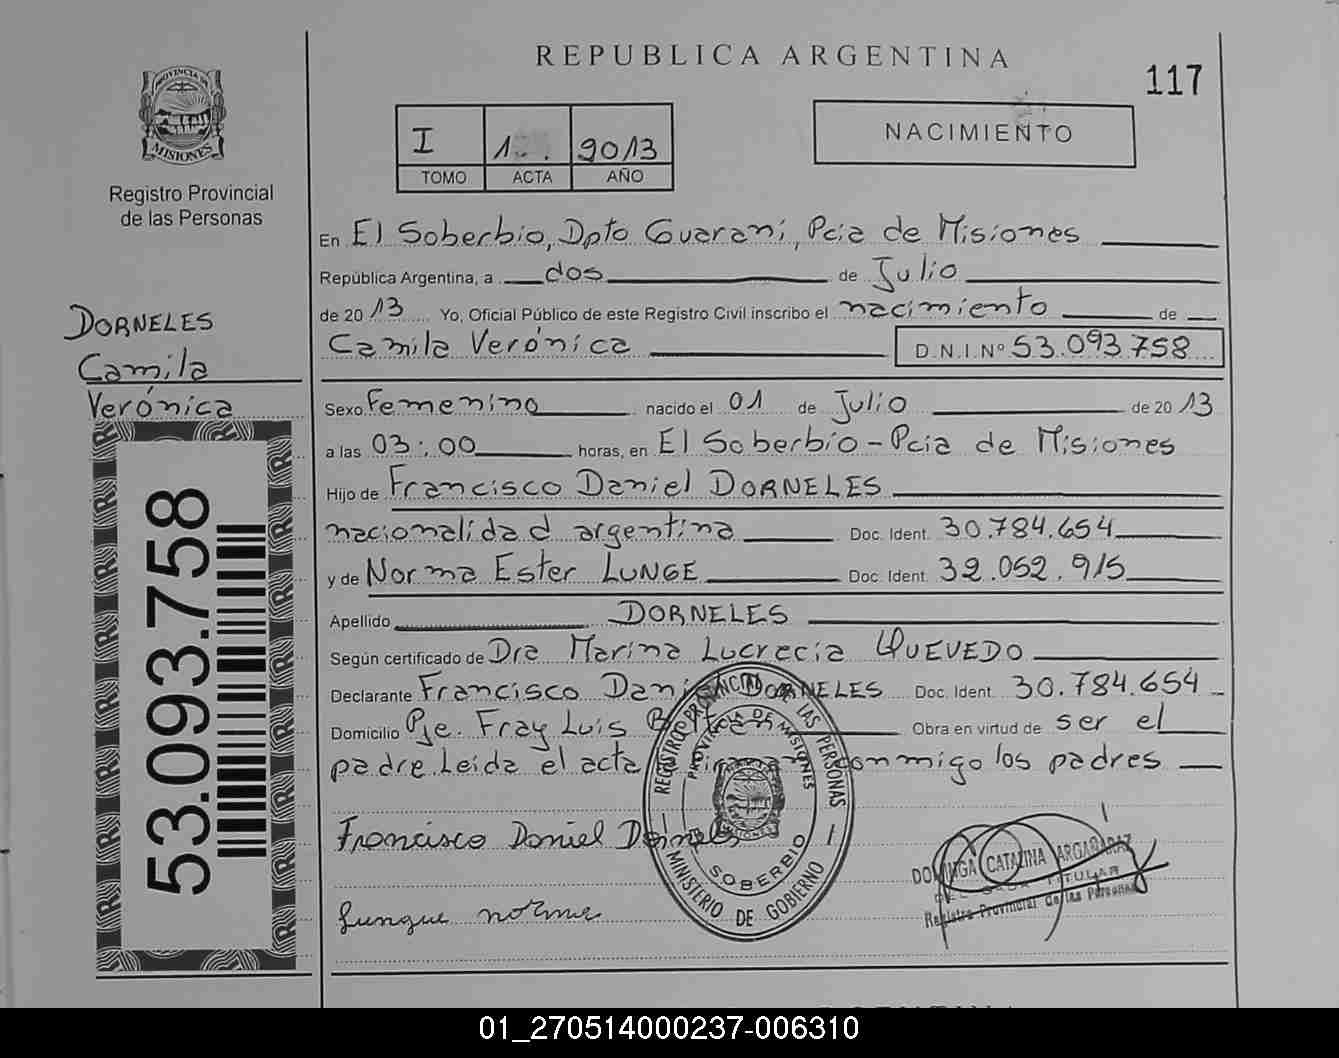 REPUBLICA ARGENTINA
117
PROVINCIA DE
MISIONES
Registro Provincial
de las Personas
I 2013
TOMO ACTA AÑO
NACIMIENTO
DORNELES
Camila
Verónica
53.093.758
En El Soberbio, Dpto Guaraní, Pcia de Misiones
República Argentina, a dos de Julio
de 2013 Yo, Oficial Público de este Registro Civil inscribo el nacimiento de
Camila Verónica D.N.I.Nº 53.093.758
Sexo Femenino nacido el 01 de Julio de 2013
a las 03:00 horas, en El Soberbio - Pcia de Misiones
Hijo de Francisco Daniel DORNELES
nacionalidad argentina Doc. Ident. 30.784.654
y de Norma Ester LUNGE Doc. Ident. 32.052.915
Apellido DORNELES
Según certificado de Dra Marina Lucrecia QUEVEDO
Declarante Francisco Daniel DORNELES Doc. Ident. 30.784.654
Domicilio Pje. Fray Luis Obra en virtud de ser el
padre. Leida el acta conmigo los padres
REGISTRO PROVINCIAL DE LAS PERSONAS
PROVINCIA DE MISIONES
SOBERBIO
MINISTERIO DE GOBIERNO
Francisco Daniel Dorneles
Lungue norma
DOMINGA CATALINA ARGAÑARAZ
TITULAR
Registro Provincial de las Personas
01_270514000237-006310